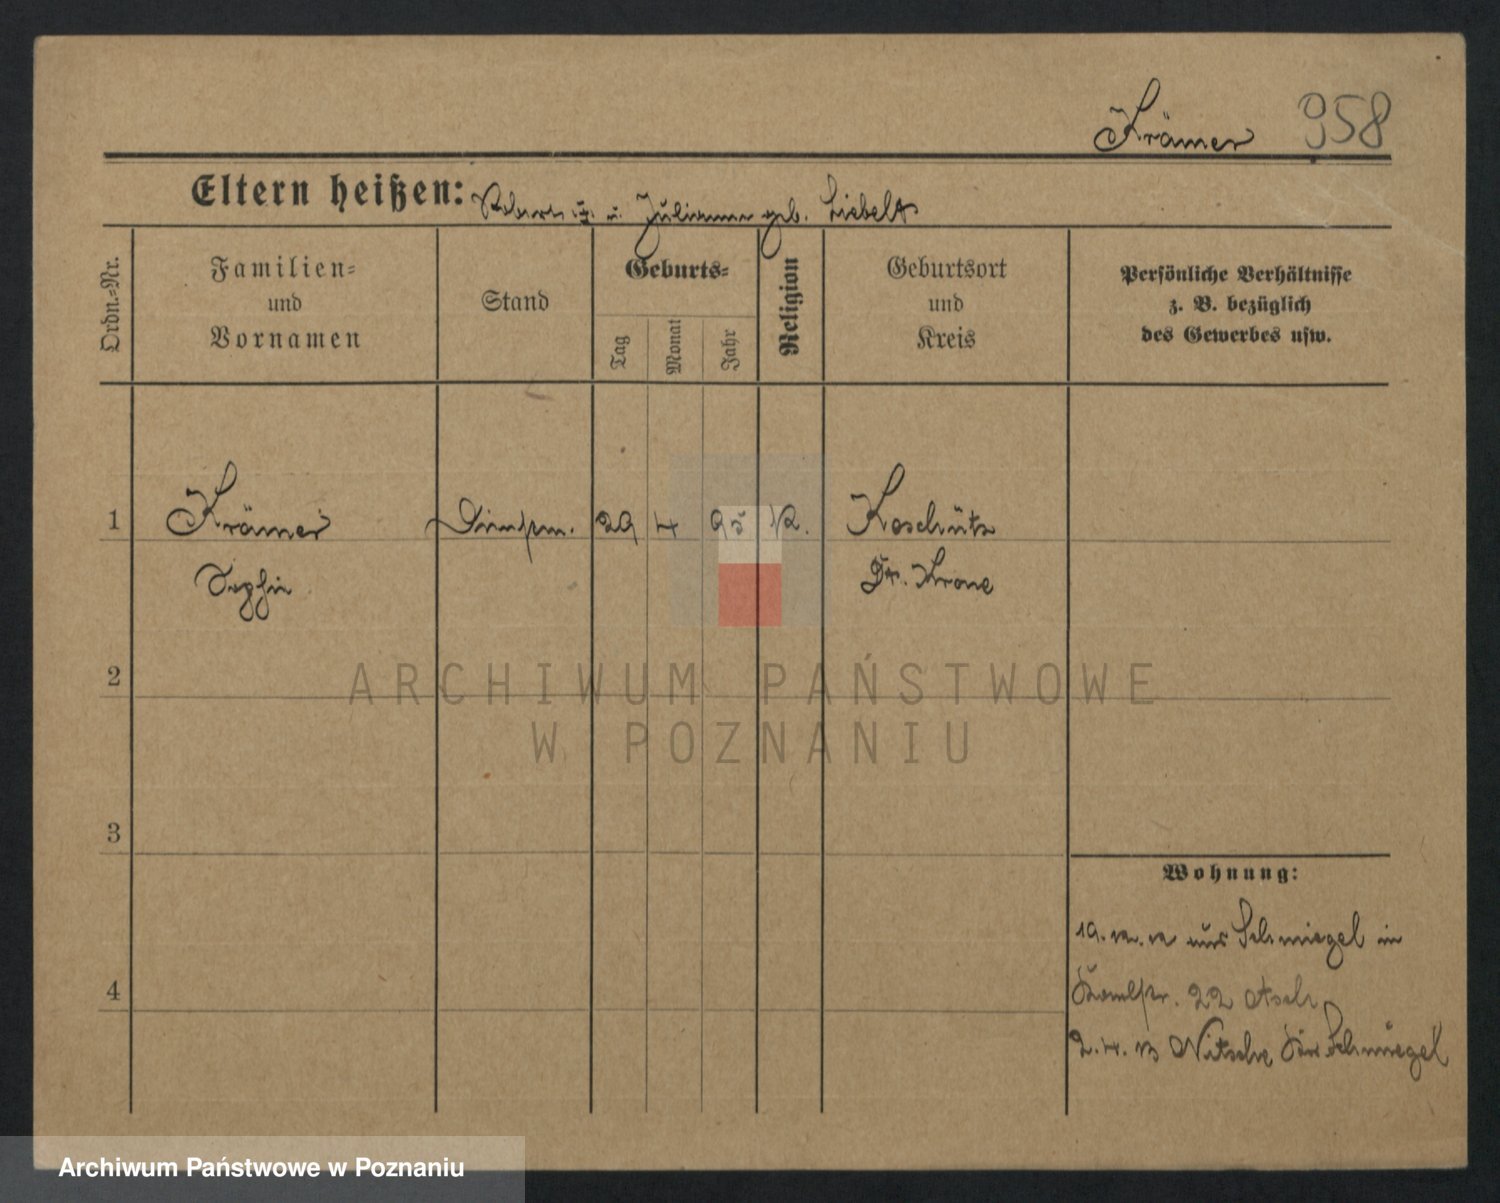 Krämer 958
Eltern heißen: u. Julianna geb. Liebelt
Ordn.-Nr.
Familien-
und
Vornamen
Stand
Geburts-
Tag
Monat
Jahr
Religion
Geburtsort
und
Kreis
Persönliche Verhältnisse
z. B. bezüglich
des Gewerbes usw.
1 Krämer 29 4 95 K. Koschütz
Sophie Dt. Krone
2
3
4
Wohnung:
aus Schmiegel in
22
2. 4. 13 Nitsche Schmiegel
ARCHIWUM PAŃSTWOWE
W POZNANIU
Archiwum Państwowe w Poznaniu